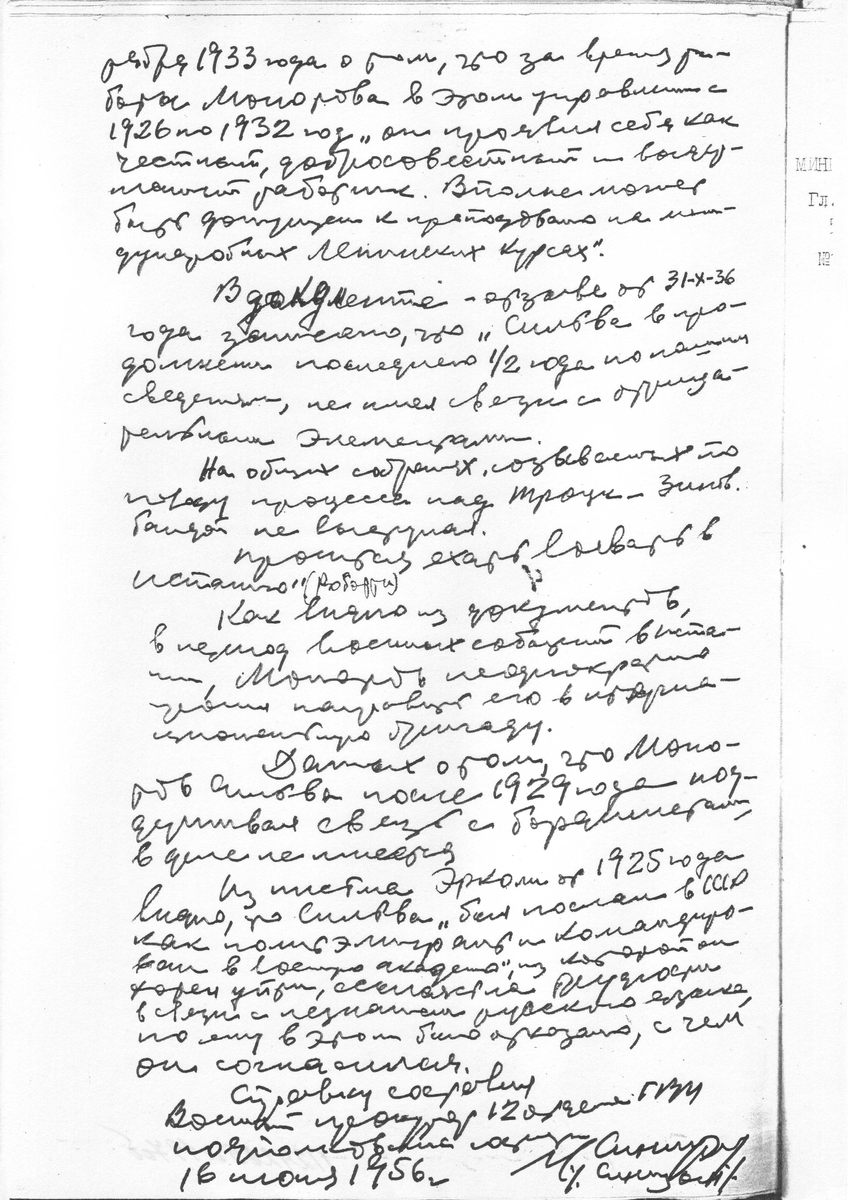 ября 1933 года о том, что за время ра-
боты Монотова в этом управлении с
1926 по 1932 год „он проявил себя как
честный, добросовестный и
работник. Вполне может
быть допущен к преподаванию на меж-
дународных Ленинских курсах".
В документе - отзыве от 31-X-36
года записано, что „Сильва в про-
должении последнего 1/2 года по нашим
сведениям, не имел связи с отрица-
тельными элементами.
На общих собраниях, созываемых по
поводу процесса над Троцк.-Зинов.
бандой не выступал.
Просился ехать воевать в
Испанию" (Роботти)
Как видно из документов,
в период военных событий в Испа-
нии, неоднократно
просил направить его в интерна-
циональную бригаду.
Данных о том, что
Сильва после 1929 года под-
держивал связь с бордигистами,
в деле не имеется
Из письма Эрколи от 1925 года
видно, что Сильва „был послан в СССР
как политэмигрант и командиро-
ван в военную академию", из которой он
хотел уйти, ссылаясь на трудности
в связи с незнанием русского языка,
но ему в этом было отказано, с чем
он согласился.
Справку составил
Военный прокурор 12 отдела ГВП
подполковник юстиции
16 июня 1956 г.
МИНИ
Гл.
№